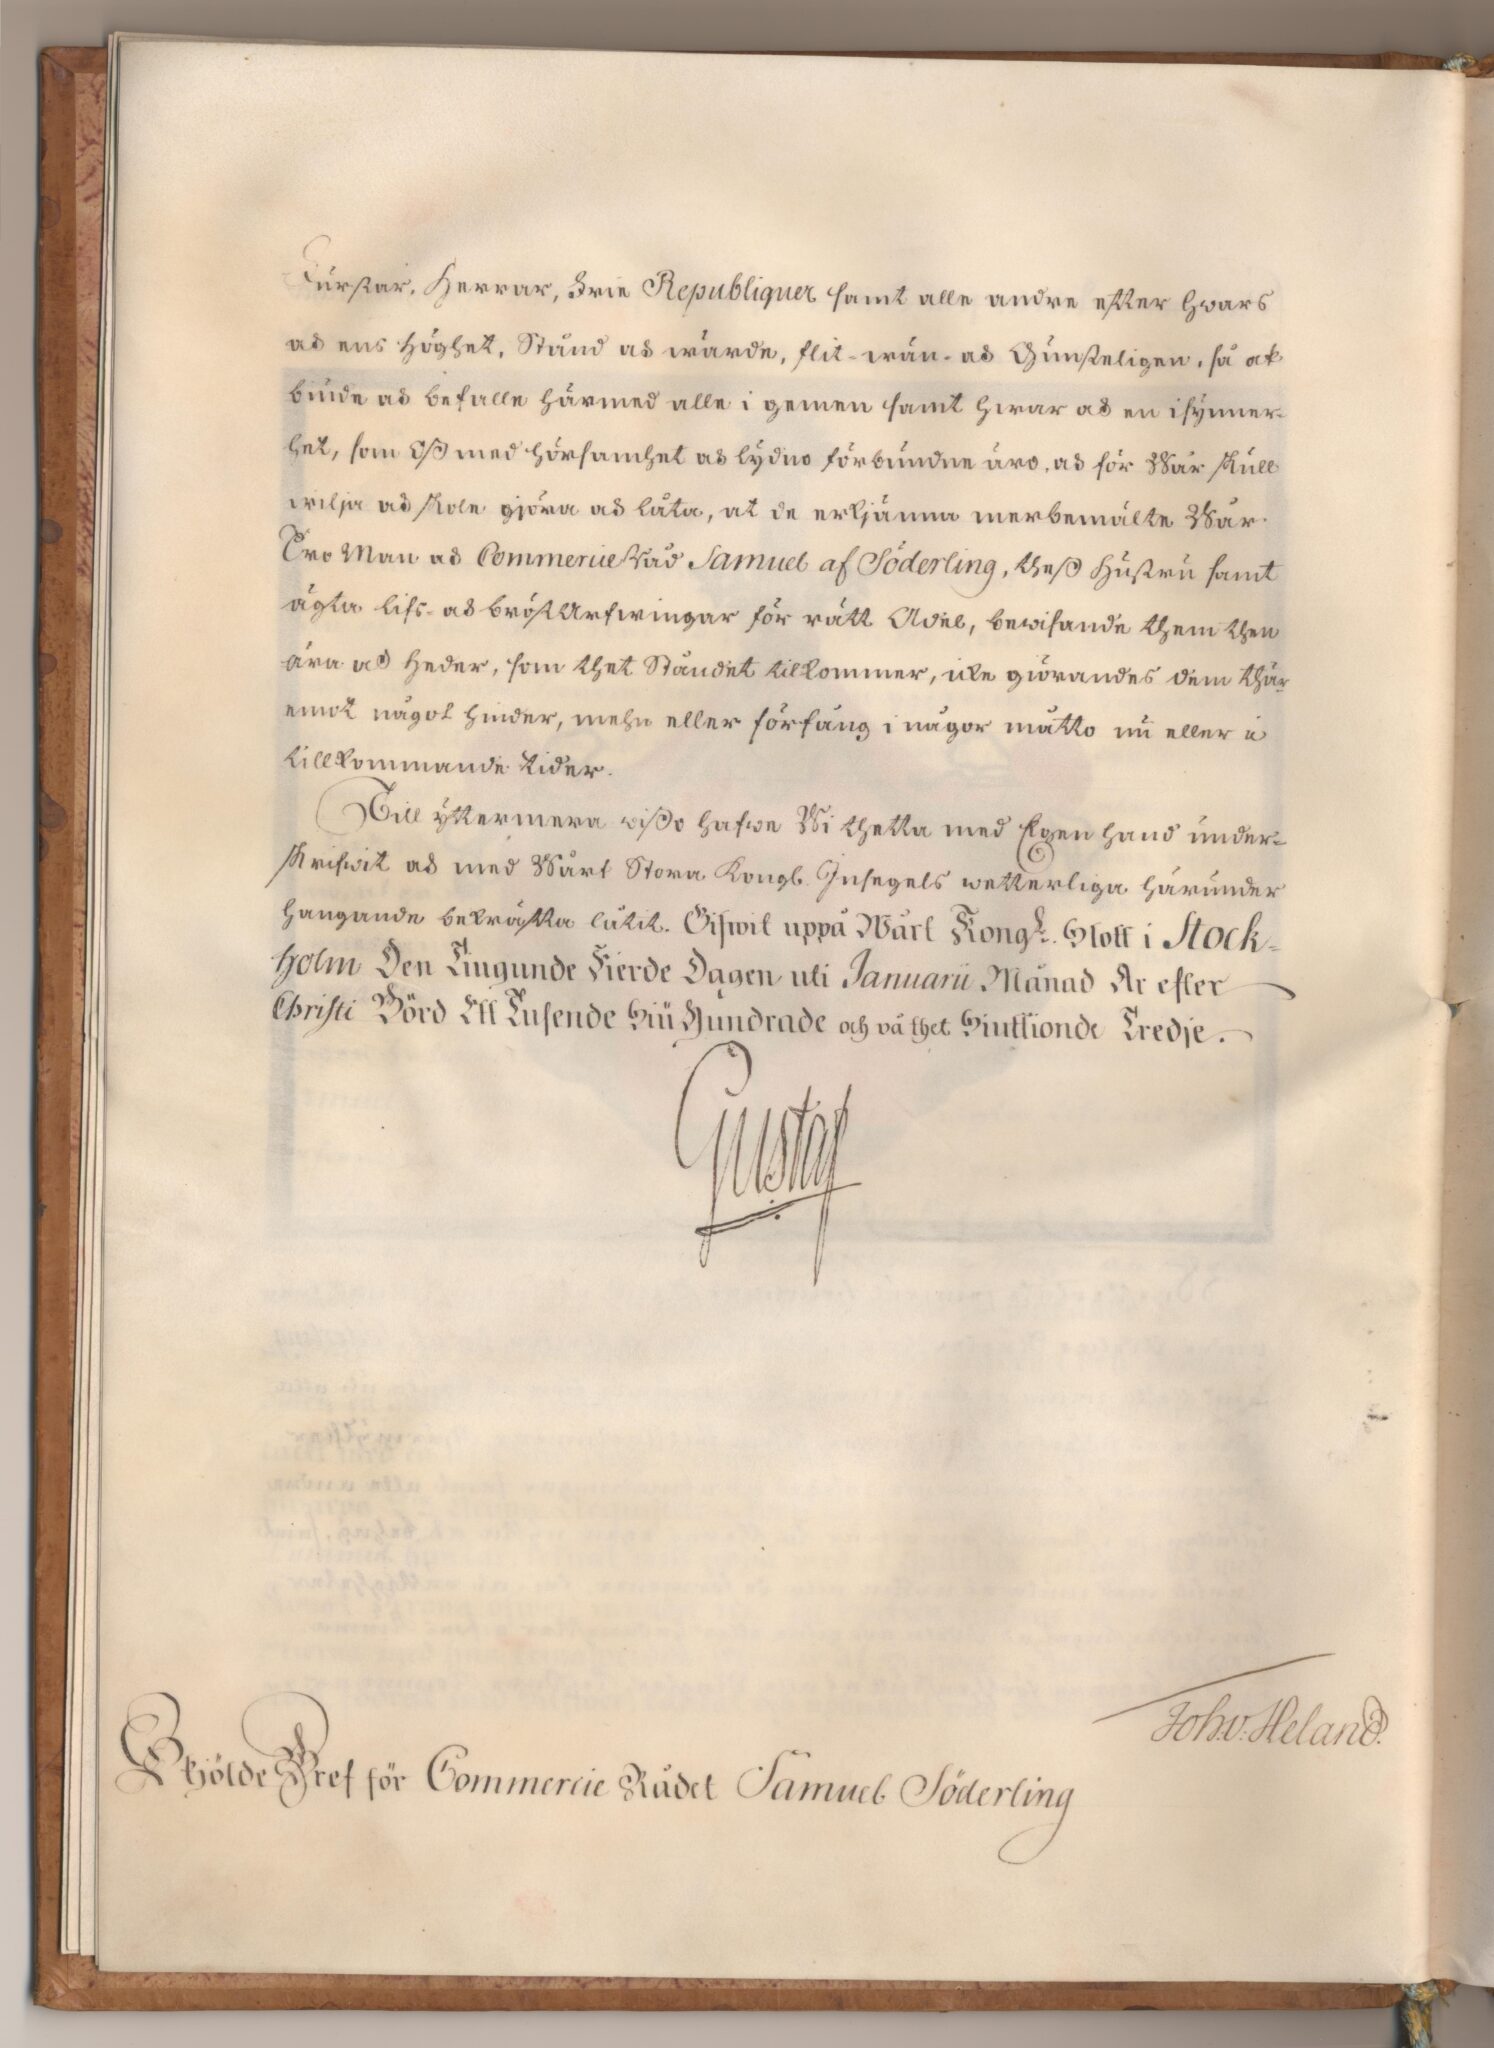 Furstar, Herrar, Frie Republiquer samt alle andre efter hwars
och ens Höghet, Stånd och wärde, flit-wän- och Gunsteligen, så ok
biude och befalle härmed alle i gemen samt hwar och en i synner-
het, som Oß med hörsamhet och lydno förbundne äro, och för Wår skull
wilja och skole gjöra och låta, at de erkjänna merbemälte Wår
Tro Man och Commercie Råd Samuel af Söderling, theß Hustru samt
ägta lifs- och bröst Arfwingar för rätt Adel, bewisande them then
ära och Heder, som thet Ståndet tilkommer, icke giörandes dem thär
emot något hinder, mehn eller förfång i någor måtto nu eller i
tillkommande tider.
Till yttermera wißo hafwe Wi thetta med Egen hand under-
skrifwit och med Wårt Stora Kongl. Insegels wetterliga härunder
hangande bekräfta låtit. Gifwit uppå Wårt Kongl. Slott i Stock-
holm Den Tiugunde Fierde Dagen uti Januarii Månad År efter
Christi Börd Ett Tusende Siu Hundrade och på thet Siuttionde Tredje.
Gustaf
Joh. v: Heland.
Skjölde Bref för Commercie Rådet Samuel Söderling